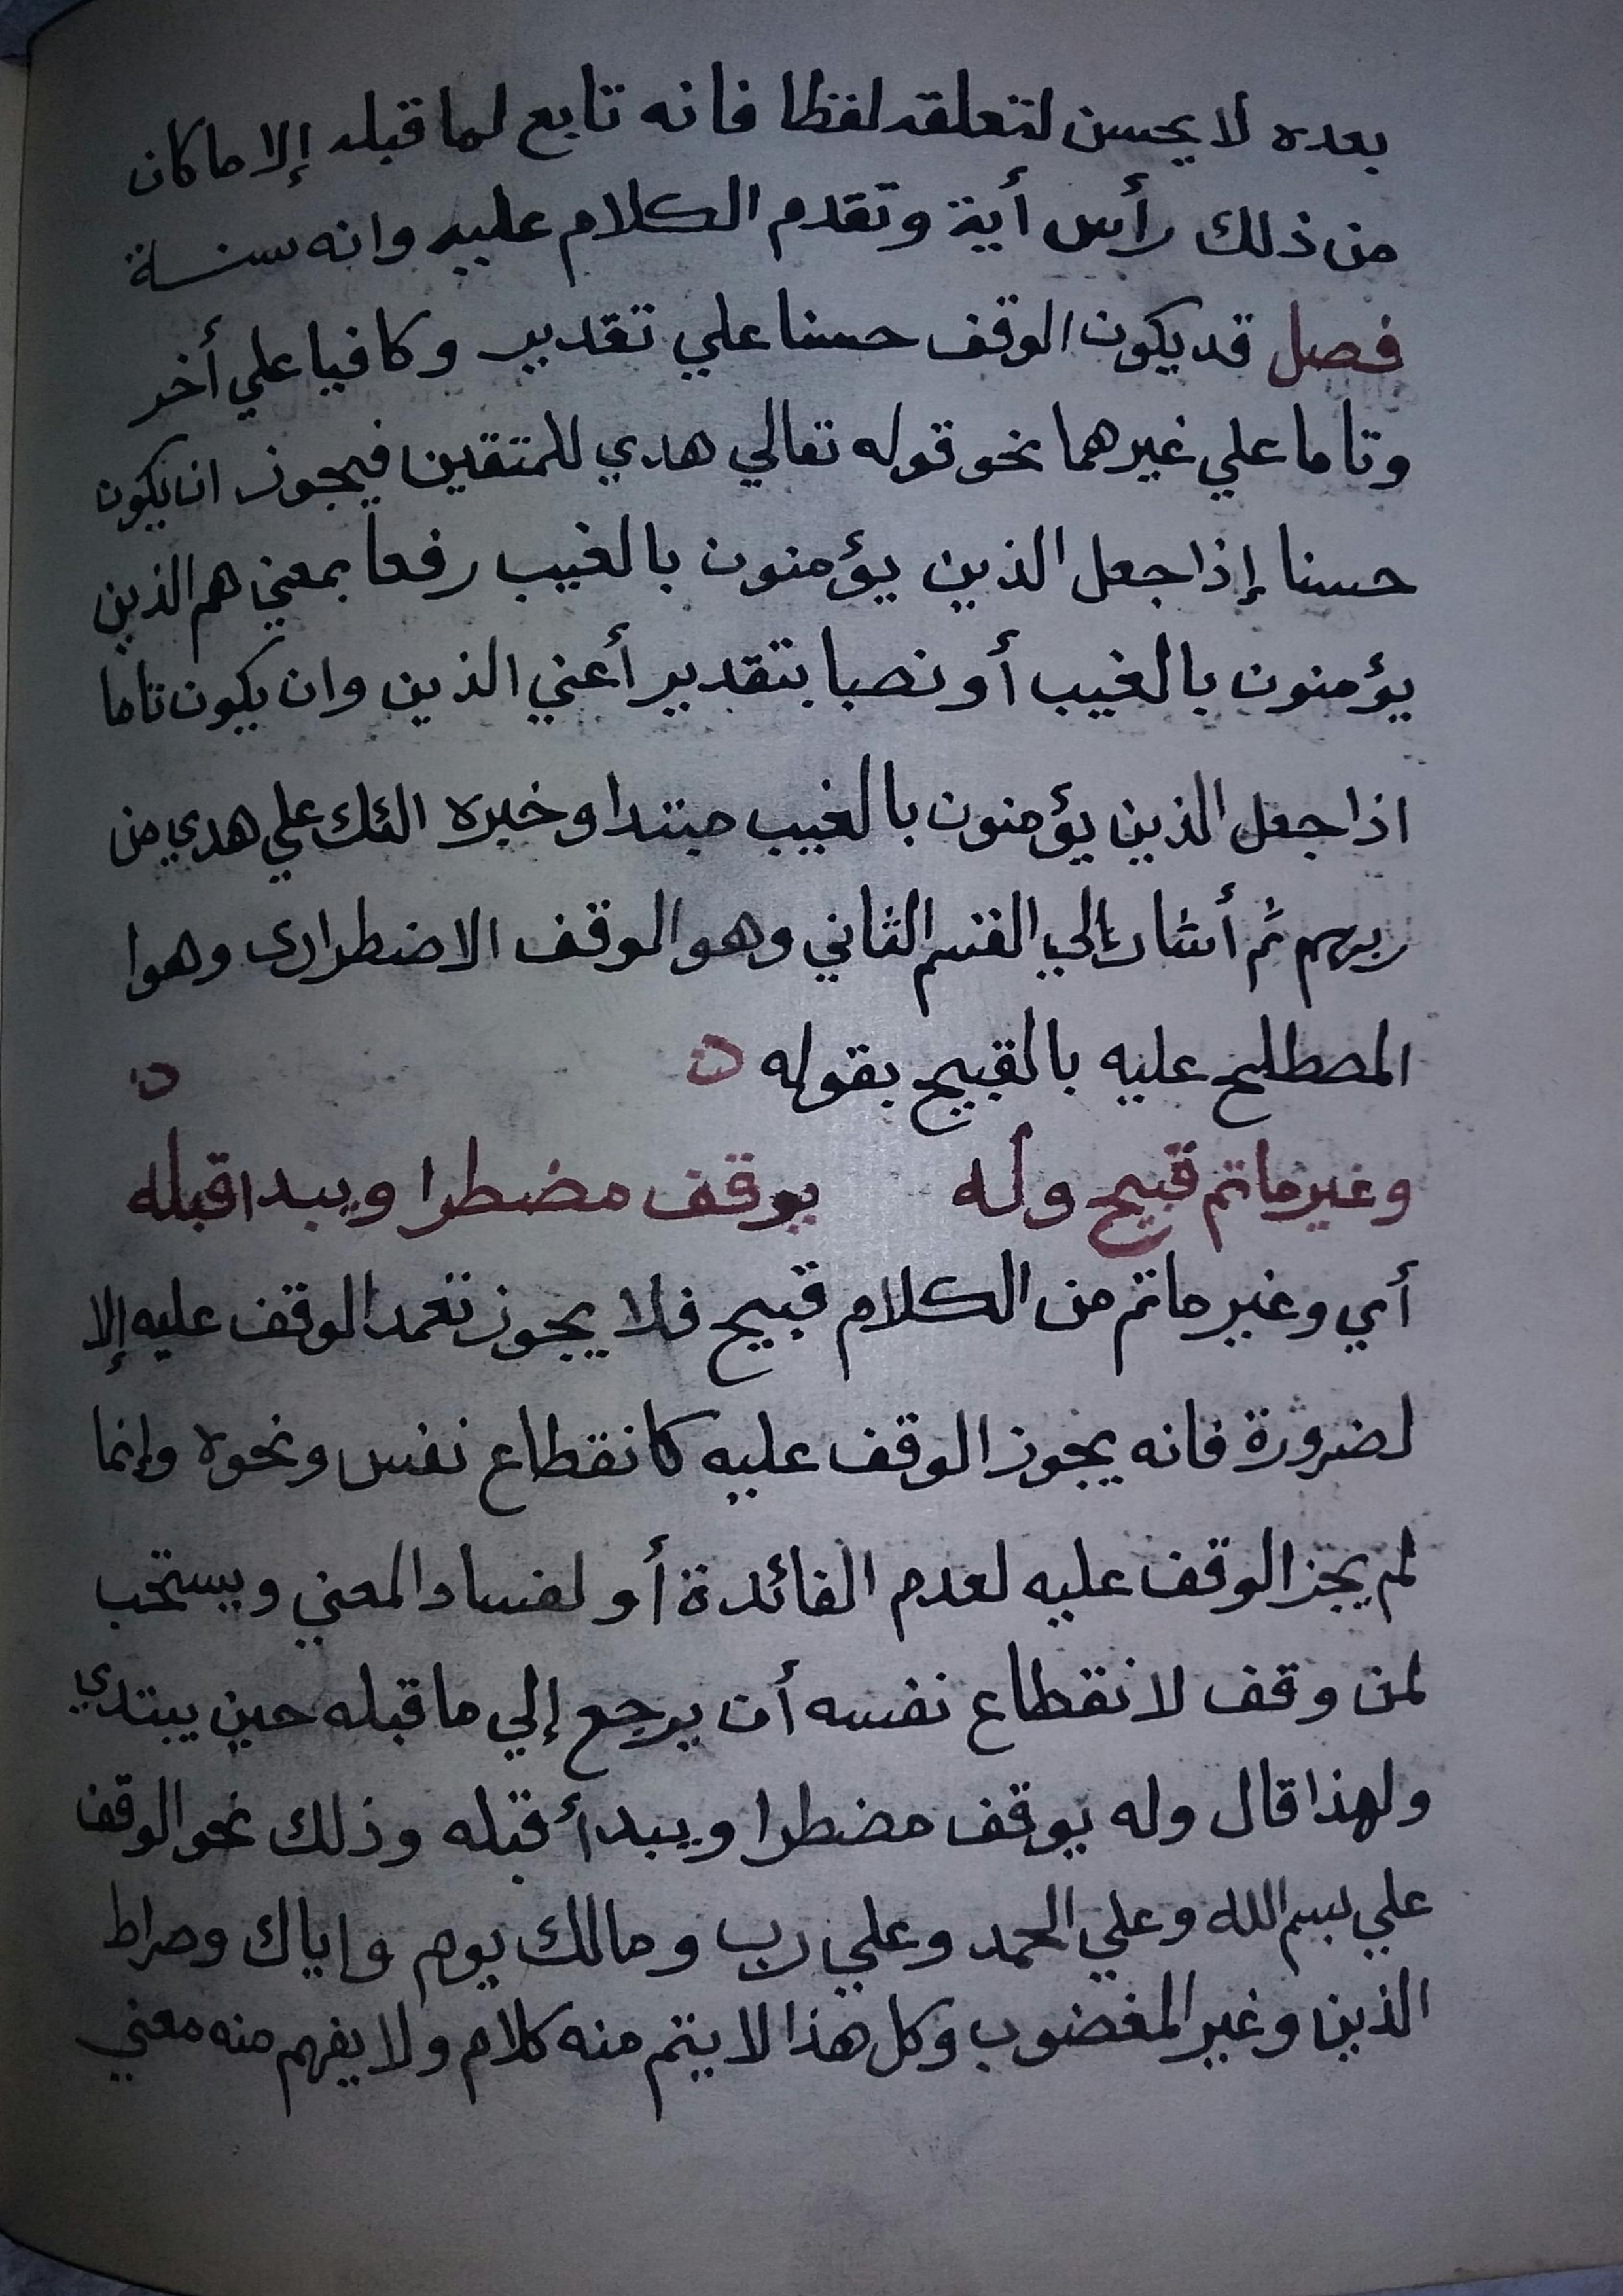 بعده لا يحسن لتعلقه لفظا فانه تابع لما قبله إلا ما كان
من ذلك رأس أية وتقدم الكلام عليه وانه سنة
فصل قد يكون الوقف حسنا علي تقدير وكافيا علي أخر
وتاما علي غيرهما نحو قوله تعالي هدي للمتقين فيجوز ان يكون
حسنا إذا جعل الذين يؤمنون بالغيب رفعا بمعني هم الذين
يؤمنون بالغيب أو نصبا بتقدير أعني الذين وان يكون تاما
اذا جعل الذين يؤمنون بالغيب مبتدا وخبره الئك علي هدي من
ربهم ثم أشار إلي القسم الثاني وهو الوقف الاضطرارى وهوا
المصطلح عليه بالقبيح بقوله
وغير ماتم قبيح وله يوقف مضطرا ويبدا قبله
أي وغير ماتم من الكلام قبيح فلا يجوز تعمد الوقف عليه إلا
لضرورة فانه يجوز الوقف عليه كانقطاع نفس ونحوه وإنما
لم يجز الوقف عليه لعدم الفائدة أو لفساد المعني ويستحب
لمن وقف لانقطاع نفسه أن يرجع إلي ما قبله حين يبتدي
ولهذا قال وله يوقف مضطرا ويبدأ قبله وذلك نحو الوقف
علي بسم الله وعلي الحمد وعلي رب ومالك يوم وإياك وصراط
الذين وغير المغضوب وكل هذا لا يتم منه كلام ولا يفهم منه معني